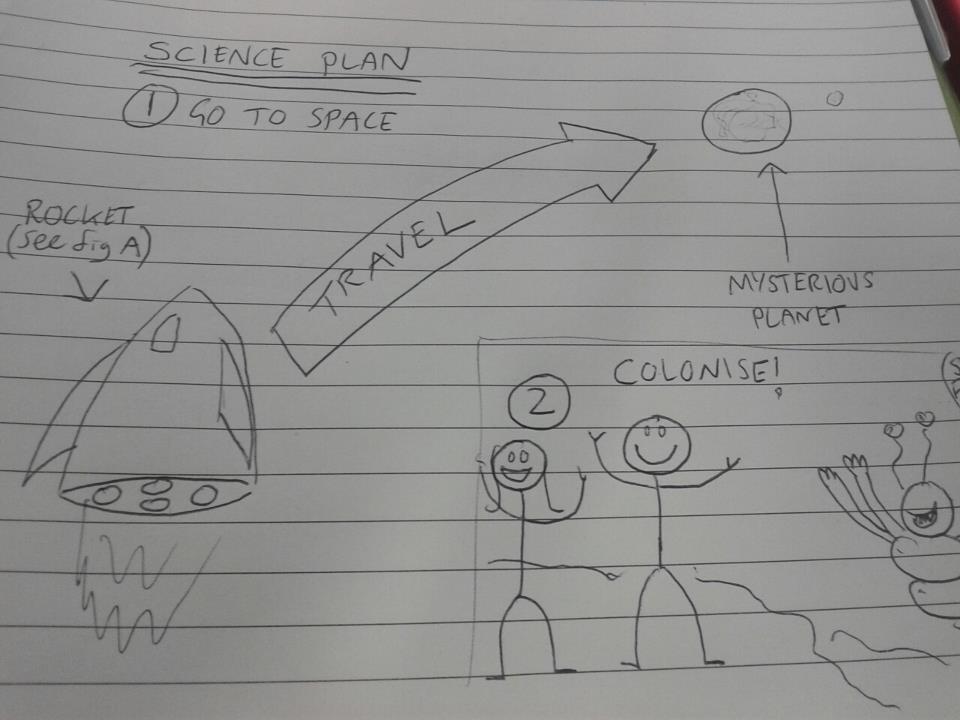 SCIENCE PLAN
1 GO TO SPACE
ROCKET
(See fig A)
TRAVEL
MYSTERIOUS
PLANET
2
COLONISE!